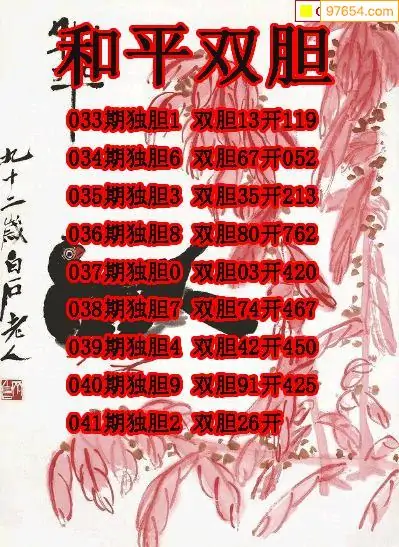 97654.com
和平双胆
033期独胆1 双胆13开119
034期独胆6 双胆67开052
035期独胆3 双胆35开213
036期独胆8 双胆80开762
037期独胆0 双胆03开420
038期独胆7 双胆74开467
039期独胆4 双胆42开450
040期独胆9 双胆91开425
041期独胆2 双胆26开
九十二岁白石老人